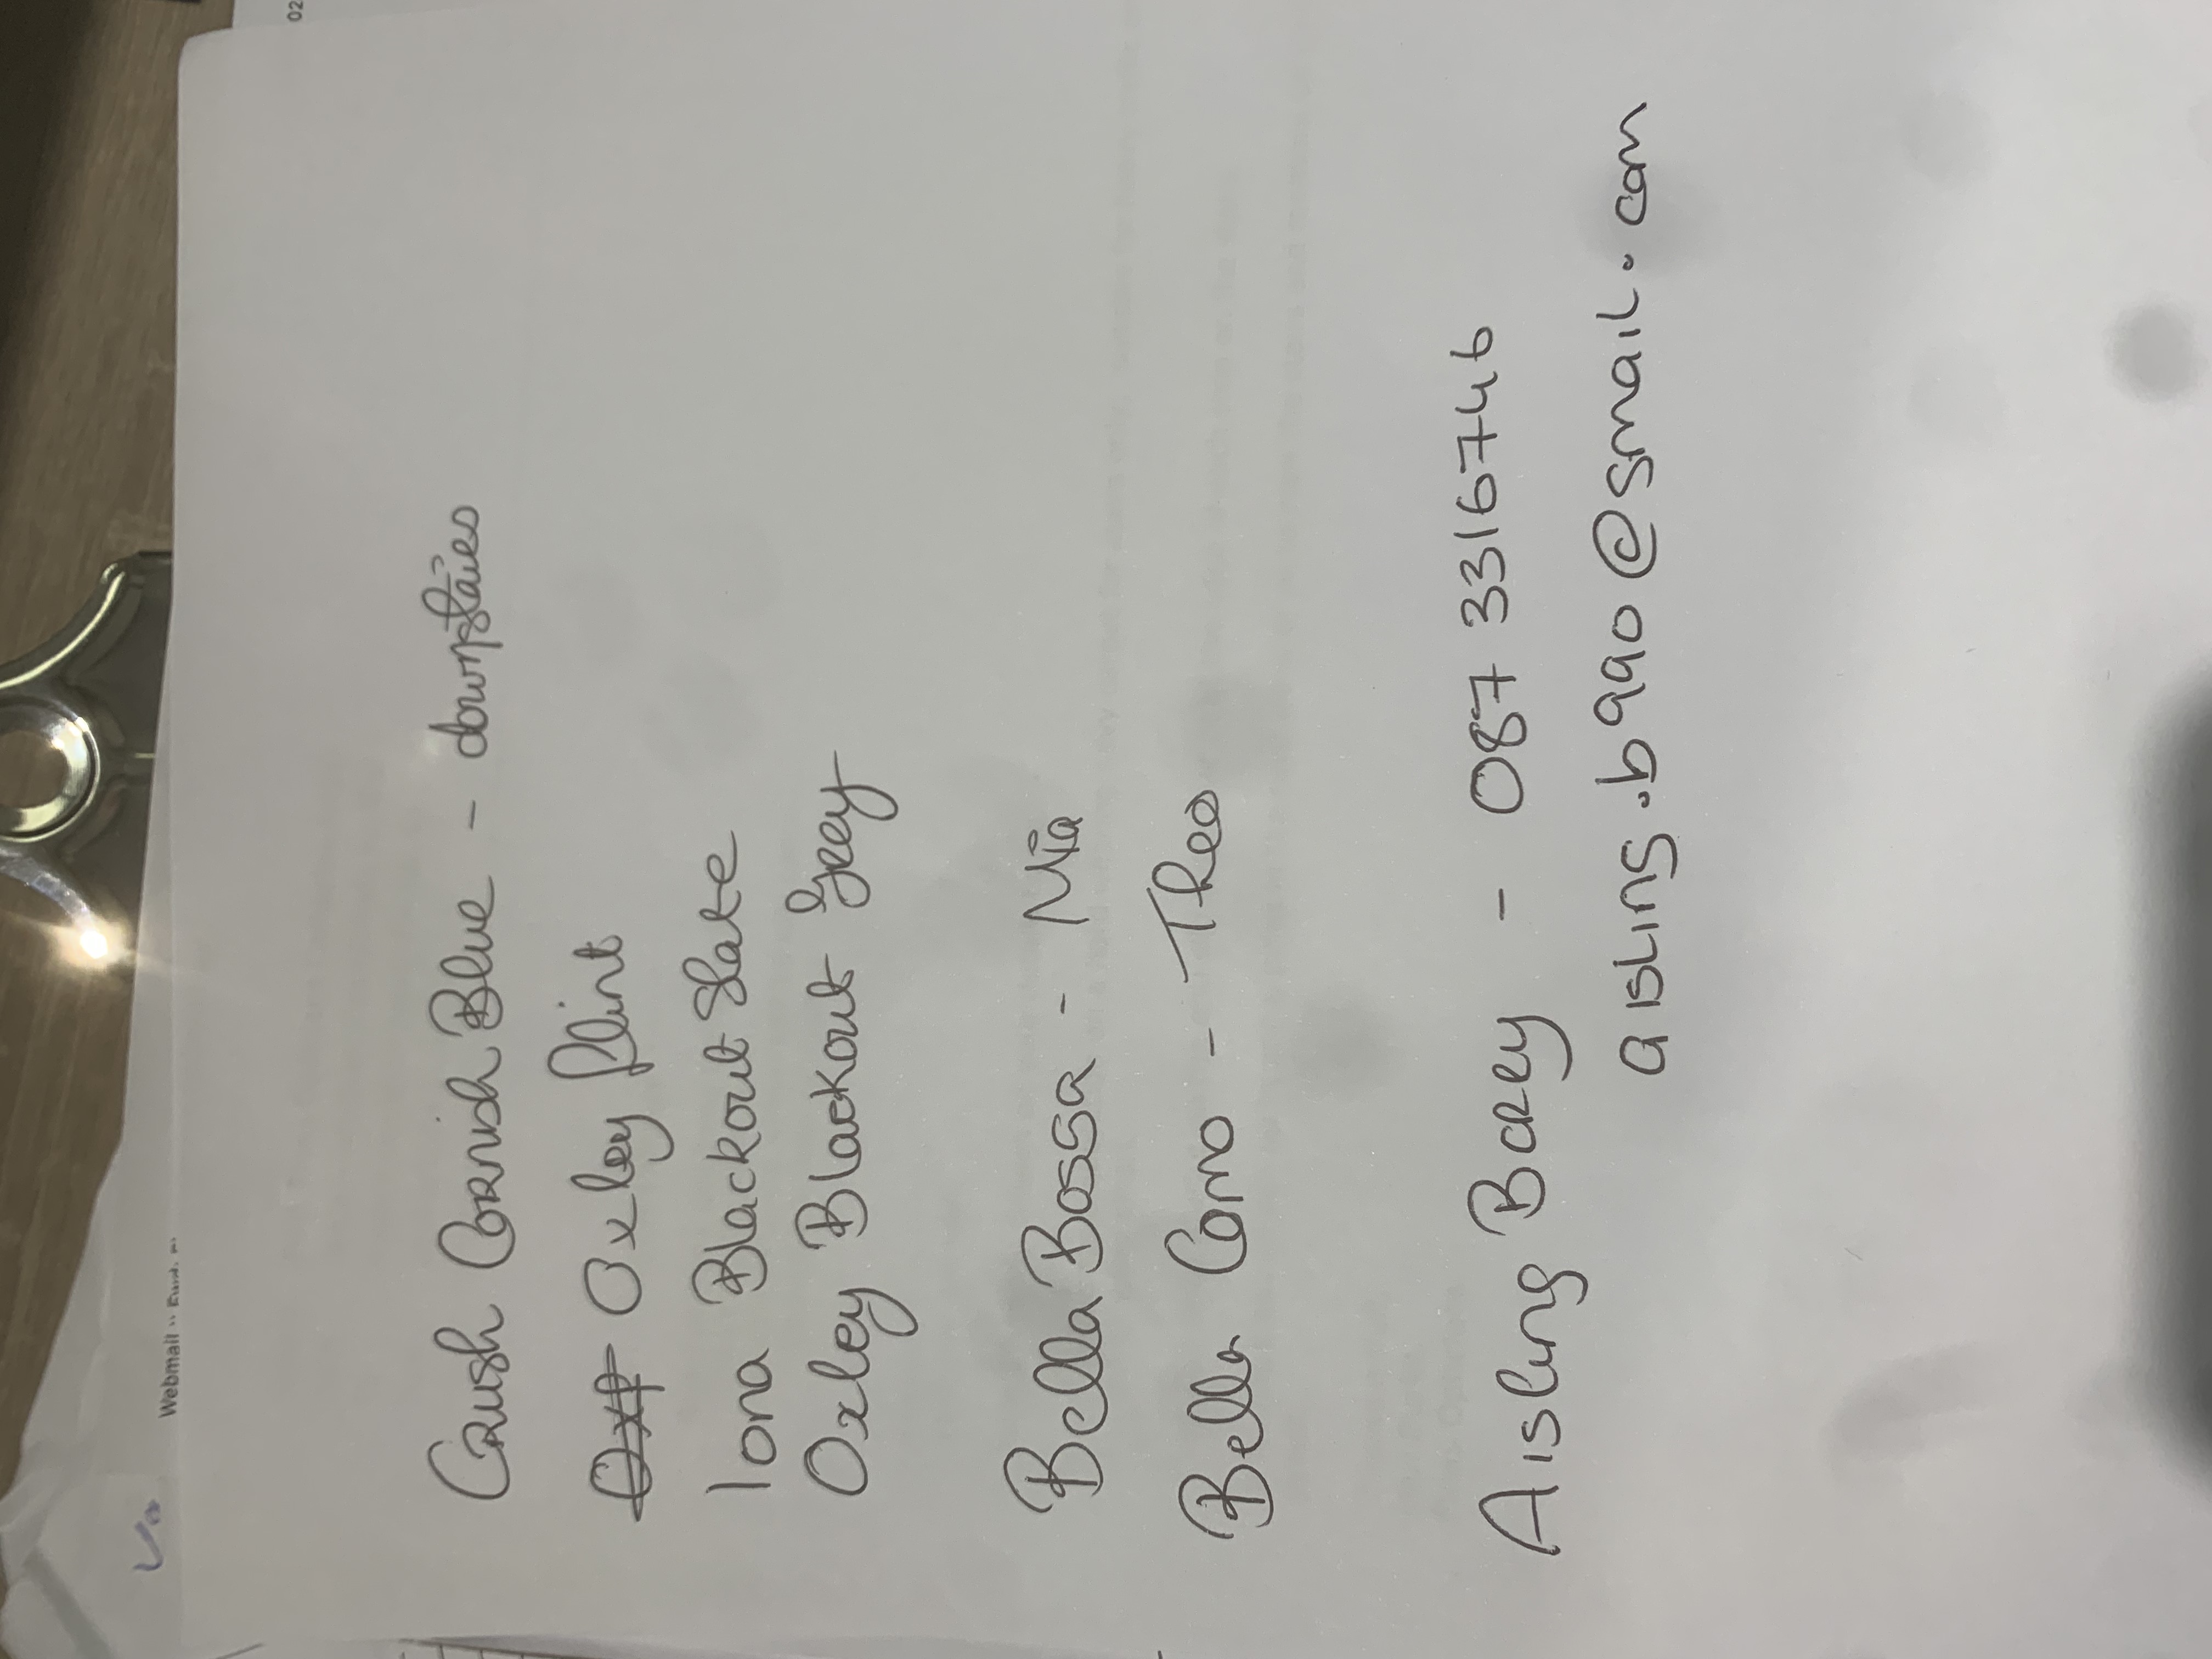 02
Webmail ::
Crush Cornish Blue - downstairs
Oxley flint
Iona Blackout Slate
Oxley Blackout Grey
Bella Bossa - Mia
Bella Como - Theo
Aisling Barry - 087 3316746
aisling.b990@gmail.com